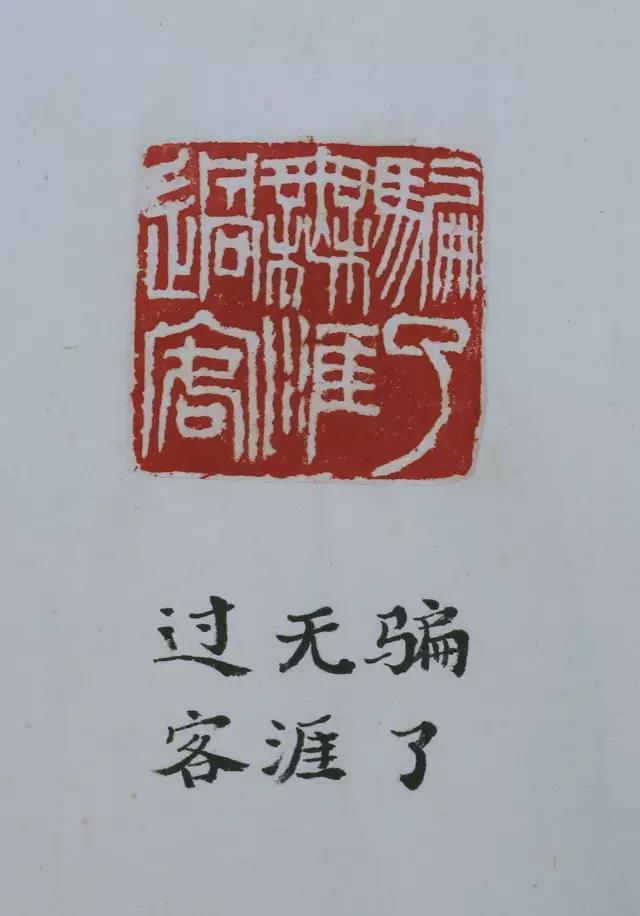 騙了
無涯
過客
骗了
无涯
过客